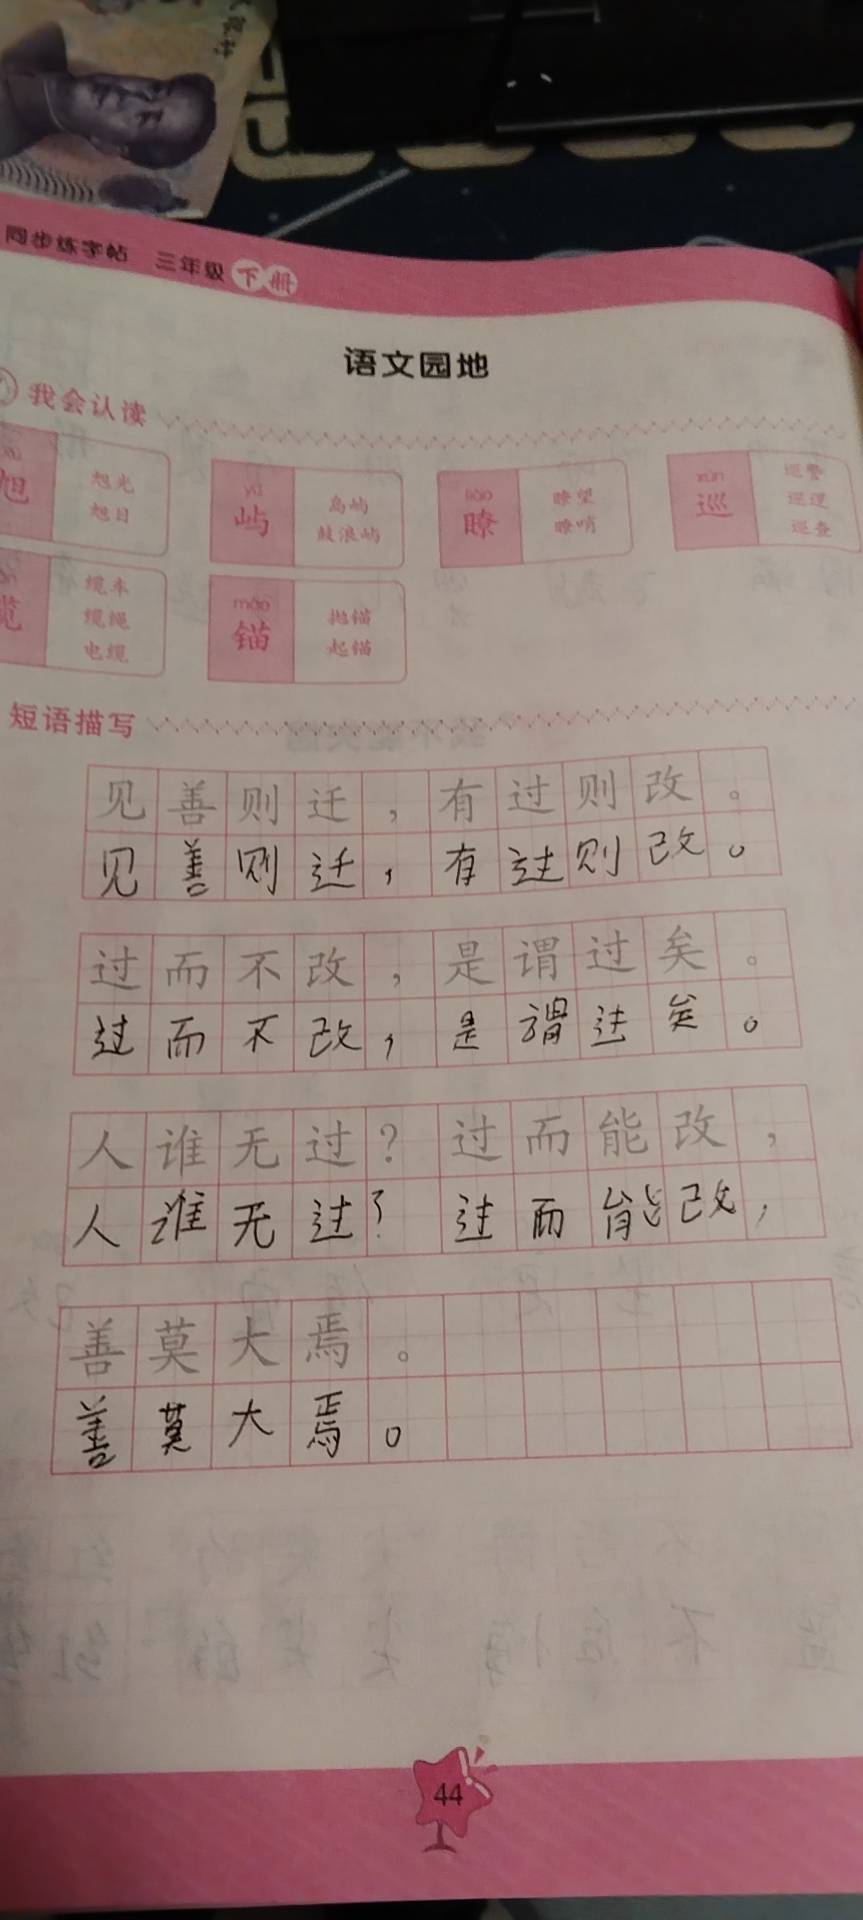 同步练字帖 三年级下册
语文园地
我会认读
旭 旭光 旭日
yǔ 屿 岛屿 鼓浪屿
liào 瞭 瞭望 瞭哨
xún 巡 巡警 巡逻 巡查
缆车 缆绳 电缆
máo 锚 抛锚 起锚
短语描写
见善则迁，有过则改。
见善则迁，有过则改。
过而不改，是谓过矣。
过而不改，是谓过矣。
人谁无过？过而能改，
人谁无过？过而能改，
善莫大焉。
善莫大焉。
44